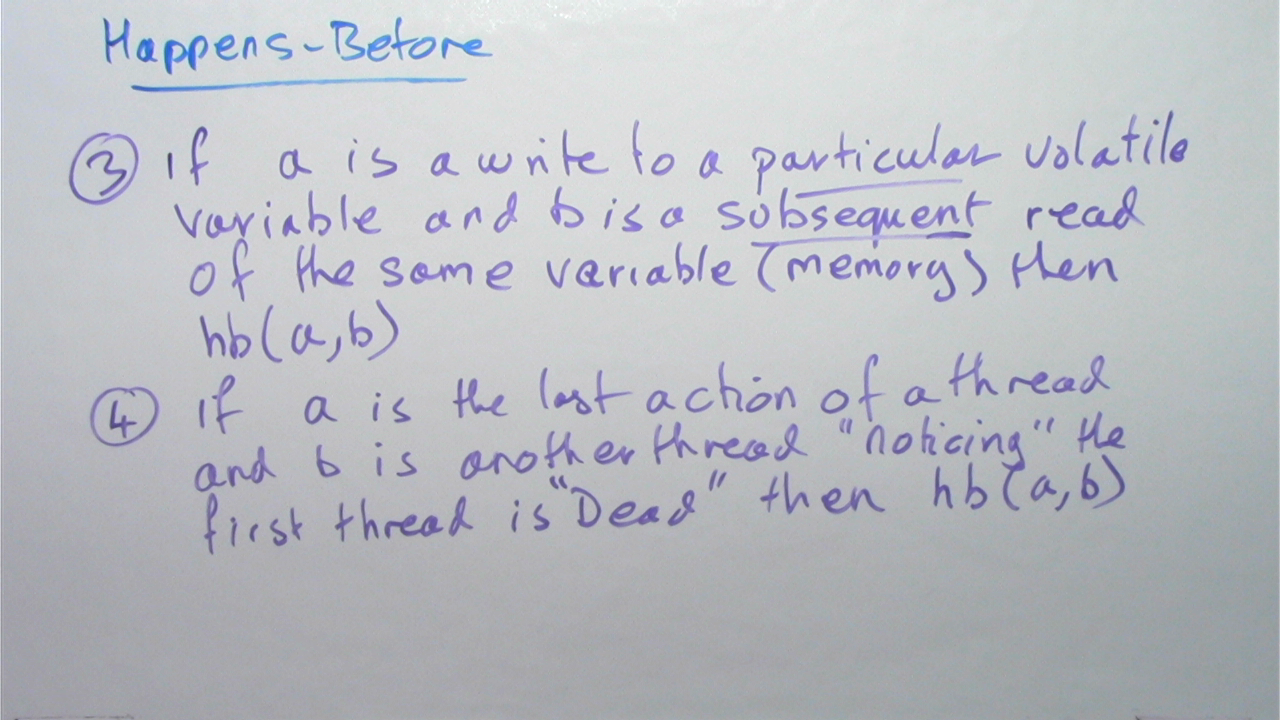 Happens-Before
③ if a is a write to a particular volatile
variable and b is a subsequent read
of the same variable (memory) then
hb(a,b)
④ if a is the last action of a thread
and b is another thread "noticing" the
first thread is "Dead" then hb(a,b)